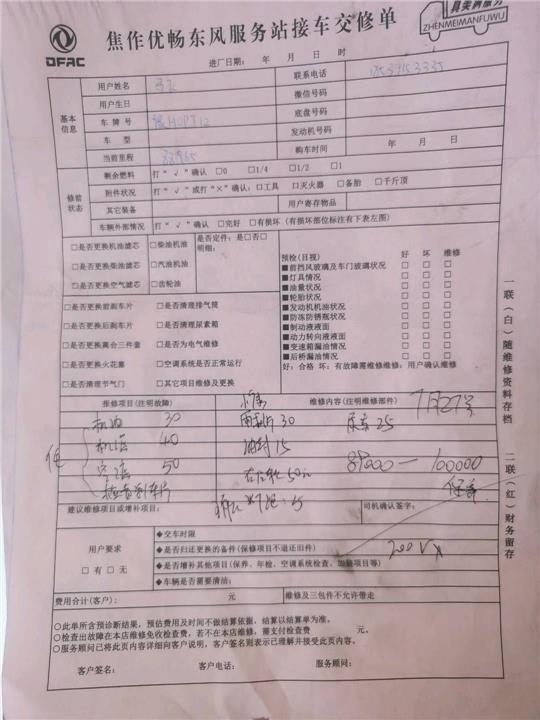 DFAC
焦作优畅东风服务站接车交修单
ZHENMEIMANFUWU
进厂日期： 年 月 日 时
基本信息
用户姓名
联系电话
用户生日
微信号码
车牌号
底盘号码
车型
发动机号码
当前里程
购车时间 年 月 日
修前状态
剩余燃料 打“√”确认 □0 □1/4 □1/2 □1
附件状况 打“√”或打“×”确认：□工具 □灭火器 □备胎 □千斤顶
其它装备
用户寄存物品
车辆外部情况 打“√”确认 □完好 □有损坏（有损坏部位标注有下表左图）
□是否更换机油滤芯 □柴油机油
□是否更换柴油滤芯 □汽油机油
□是否更换空气滤芯 □齿轮油
是否定件：是□否□
明细：
□是否更换前刹车片 □是否清理排气筒
□是否更换后刹车片 □是否清理尿素箱
□是否更换离合三件套 □是否为电气维修
□是否更换火花塞 □空调系统是否正常运行
□是否清理节气门 □其它项目维修及更换
预检(目视) 好 坏 维修
■前挡风玻璃及车门玻璃状况 □ □ □
■灯具情况 □ □ □
■油量状况 □ □ □
■轮胎状况 □ □ □
■发动机机油状况 □ □ □
■防冻防锈瓶状况 □ □ □
■制动液液面 □ □ □
■动力转向液液面 □ □ □
■变速箱漏油情况 □ □ □
■后桥漏油情况 □ □ □
好：合格 坏：有故障需维修维修：用户确认维修
报修项目(注明故障)
维修内容(注明维修部件)
7月27号
机油 30
雨刮片 30
尿素 25
机滤 40
油封 15
空滤 50
50
89000—100000
检查刹车片
保养
建议维修项目或增补项目：
司机确认签字：
用户要求
□有 □无
◆交车时限
◆是否归还更换的备件(保修项目不退还旧件)
200
◆是否增补其他项目(保养、年检、空调系统检查、加装项目等)
◆车辆是否需要清洁：
费用合计(客户)： 元
维修及三包件不允许带走
○此单所含预诊断结果，预估费用及时间不做结算依据，结算以结算单为准。
○检查出故障在本店维修免收检查费，若不在本店维修，需支付检查费 元。
○服务顾问已将此页内容详细向客户说明，客户签名则表示已理解并接受此页内容。
客户签名： 客户电话： 服务顾问：
一联(白)随维修资料存档
二联(红)财务留存